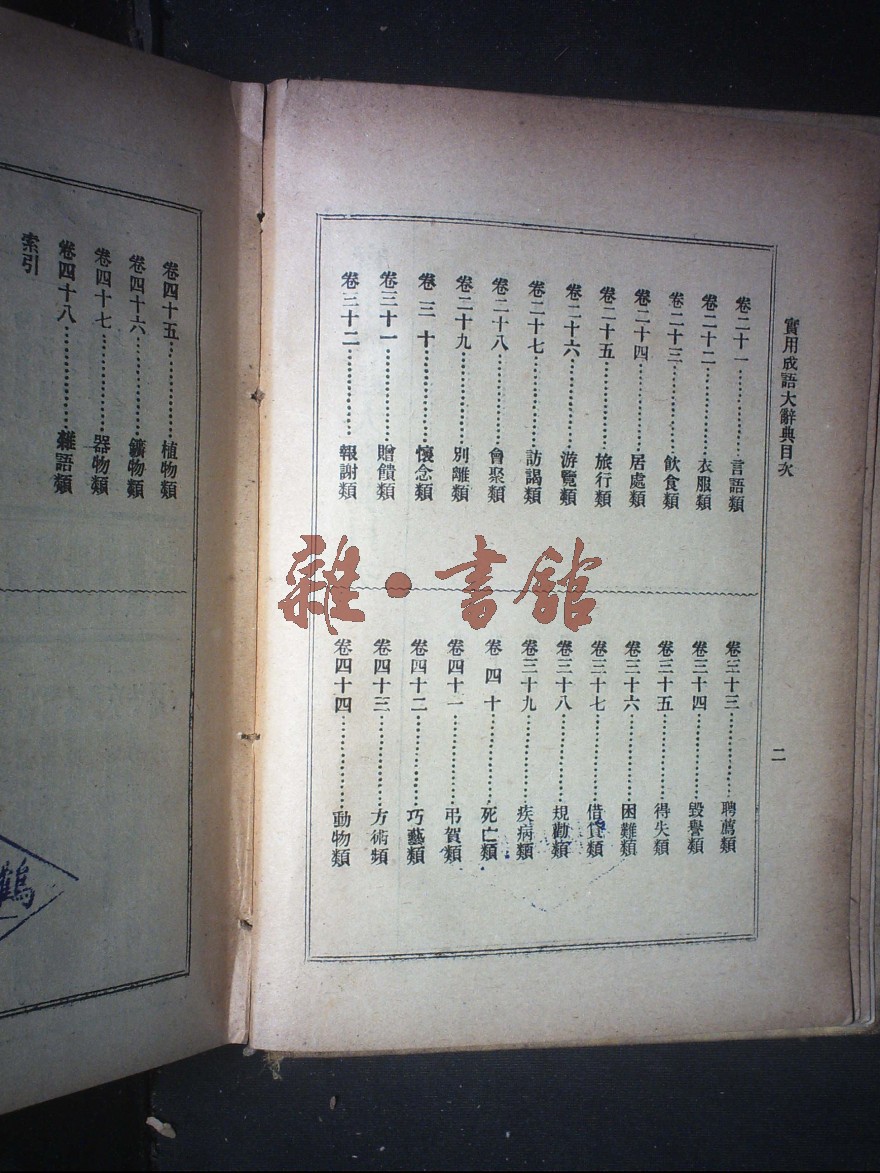 實用成語大辭典目次
卷二十一…………言語類
卷二十二…………衣服類
卷二十三…………飲食類
卷二十四…………居處類
卷二十五…………旅行類
卷二十六…………游覽類
卷二十七…………訪謁類
卷二十八…………會聚類
卷二十九…………別離類
卷三十…………懷念類
卷三十一…………贈饋類
卷三十二…………報謝類
卷三十三…………聘薦類
卷三十四…………毀譽類
卷三十五…………得失類
卷三十六…………困難類
卷三十七…………借貸類
卷三十八…………規勸類
卷三十九…………疾病類
卷四十…………死亡類
卷四十一…………弔賀類
卷四十二…………巧藝類
卷四十三…………方術類
卷四十四…………動物類
二
卷四十五…………植物類
卷四十六…………鑛物類
卷四十七…………器物類
卷四十八…………雜語類
索引
雜·書館
鶴